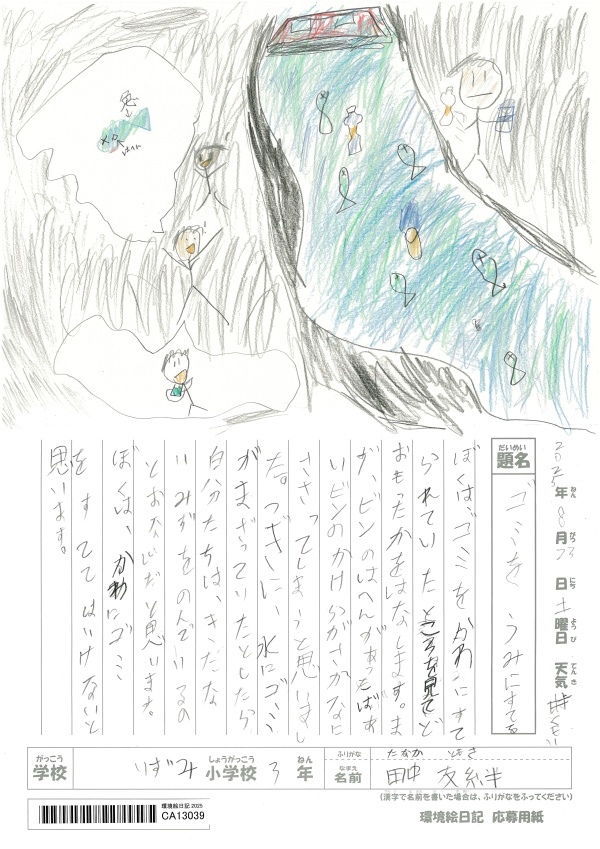 2025年 8月 23日 土曜日 天気
題名 ゴミを うみにすてる
ぼくはゴミをかわにすて
られていたところを見てど
おもったかをはなします。ま
が、ビンのはへんがあったばあ
いビンのかけらがさかなに
ささってしまうと思いまし
た。つぎに、水にゴミ
がまざっていたとしたら
自分たちは、きたな
いみずをのんでいるの
とおなじだと思います。
ぼくは、かわにゴミ
をすててはいけないと
思います。
がっこう しょうがっこう ねん
学校 いずみ 小学校 3 年
ふりがな たなか ともき
なまえ
名前 田中 友絆
(漢字で名前を書いた場合は、ふりがなをふってください)
環境絵日記 応募用紙
環境絵日記 2025
CA13039